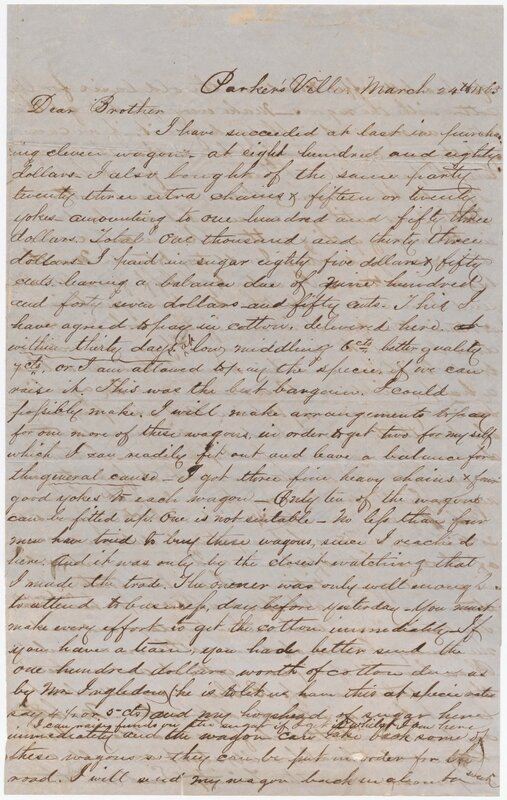 Parker's Ville March 24th 1863
Dear Brother
I have succeeded at last in purchas
ing eleven wagons at eight hundred and eighty
dollars. I also bought of the same party
twenty three extra chains & fifteen or twenty
yokes amounting to one hundred and fifty three
dollars. Total one thousand and thirty three
dollars. I paid in sugar eighty five dollars & fifty
cents leaving a balance due of Nine hundred
and forty seven dollars and fifty cents. This I
have agreed to pay in cotton, delivered here
within thirty days at low middling 6 cts better quality
7 cts, or I am allowed to pay the specie, if we can
raise it. This was the best bargain I could
possibly make. I will make arrangements to pay
for one more of these wagons, in order to get two for myself
which I can readily fit out and leave a balance for
the general cause — I got three fine heavy chains & four
good yokes to each wagon — Only ten of the wagons
can be fitted up. One is not suitable — No less than four
men have tried to buy these wagons, since I reached
here. And it was only by the closest watching that
I made the trade. The owner was only well enough
to attend to business, day before yesterday. You must
make every effort to get the cotton immediately. If
you have a train, you had better send the
one hundred dollars worth of cotton due us
by Mr Ingledow (he is to let us have this at specie rates
say or 5 cts) and my hogshead of sugar here
I can raise funds by the
immediately and the wagon can take back some of
these wagons so they can be put in order for the
road. I will send my wagon back in about a week